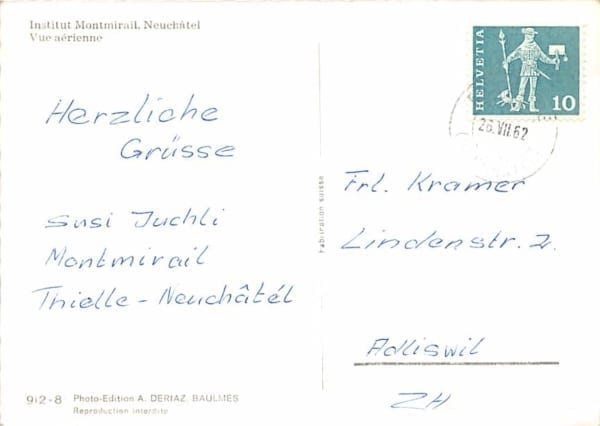 Institut Montmirail, Neuchâtel
Vue aérienne
Herzliche
Grüsse
Susi Juchli
Montmirail
Thielle - Neuchâtél
912-8 Photo-Edition A. DERIAZ. BAULMES
Reproduction interdite
Fabrication suisse
HELVETIA
10
26.VII.62
Frl. Kramer
Lindenstr.
Adliswil
ZH